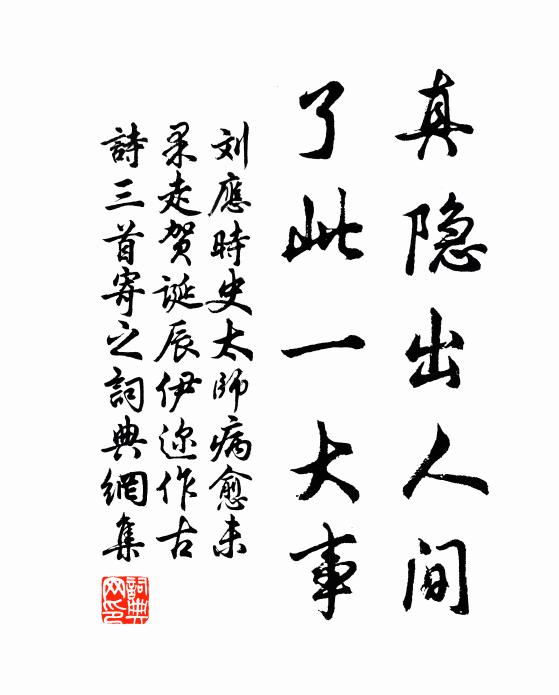 真隐出人间
了此一大事
刘應時史太師病愈未
果走贺誕辰伊迩作古
詩三首寄之詞典網集
詞典
网印